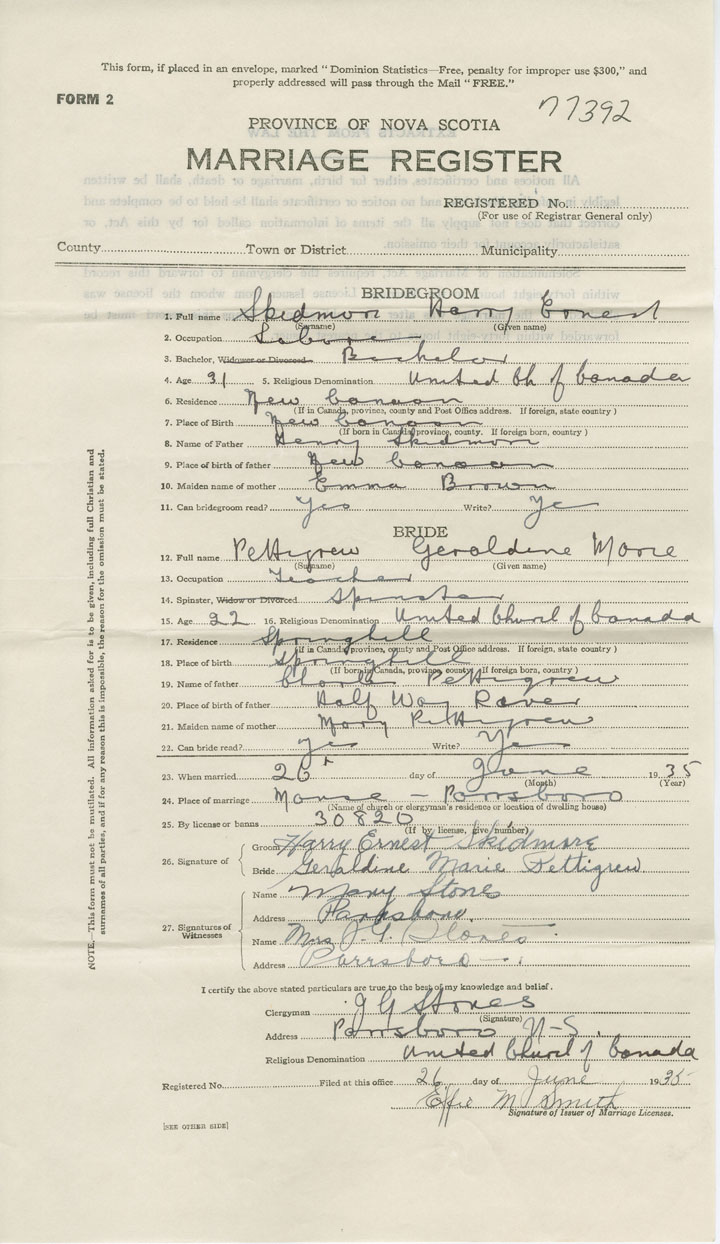 This form, if placed in an envelope, marked "Dominion Statistics—Free, penalty for improper use $300," and
properly addressed will pass through the Mail "FREE."
FORM 2
77392
PROVINCE OF NOVA SCOTIA
MARRIAGE REGISTER
REGISTERED No.
(For use of Registrar General only)
County Town or District Municipality
BRIDEGROOM
1. Full name Skidmore Harry Ernest
(Surname) (Given name)
2. Occupation Laborer
3. Bachelor, Widower or Divorced Bachelor
4. Age 31 5. Religious Denomination United Ch of Canada
6. Residence New Canaan
(If in Canada, province, county and Post Office address. If foreign, state country)
7. Place of Birth New Canaan
(If born in Canada, province, county. If foreign born, country)
8. Name of Father Henry Skidmore
9. Place of birth of father New Canaan
10. Maiden name of mother Emma Brown
11. Can bridegroom read? Yes Write? Yes
BRIDE
12. Full name Pettigrew Geraldine Marie
(Surname) (Given name)
13. Occupation Teacher
14. Spinster, Widow or Divorced Spinster
15. Age 22 16. Religious Denomination United Church of Canada
17. Residence Springhill
(If in Canada, province, county and Post Office address. If foreign, state country)
18. Place of birth Springhill
(If born in Canada, province, county. If foreign born, country)
19. Name of father Pettigrew
20. Place of birth of father Half Way River
21. Maiden name of mother Mary Pettigrew
22. Can bride read? Yes Write? Yes
23. When married 26 day of June 1935
(Month) (Year)
24. Place of marriage Manse - Parrsboro
(Name of church or clergyman's residence or location of dwelling house)
25. By license or banns 30820
(If by license, give number)
26. Signature of
Groom Harry Ernest Skidmore
Bride Geraldine Marie Pettigrew
27. Signatures of Witnesses
Name Mary Stones
Address Parrsboro.
Name Mrs J. G. Stones
Address Parrsboro
I certify the above stated particulars are true to the best of my knowledge and belief.
Clergyman J G Stones
(Signature)
Address Parrsboro N-S.
Religious Denomination United Church of Canada
Registered No. Filed at this office 26 day of June 1935
Effie M Smith
Signature of Issuer of Marriage Licenses.
[SEE OTHER SIDE]
NOTE.—This form must not be mutilated. All information asked for is to be given, including full Christian and
surnames of all parties, and if for any reason this is impossible, the reason for the omission must be stated.